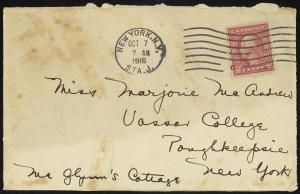 NEW YORK, N.Y.
OCT 7
7 AM
1916
STA. J.
U.S. POSTAGE
2 CENTS 2
Miss Marjorie MacAndrew
Vassar College
Poughkeepsie
New York
Mc Glynn's Cottage